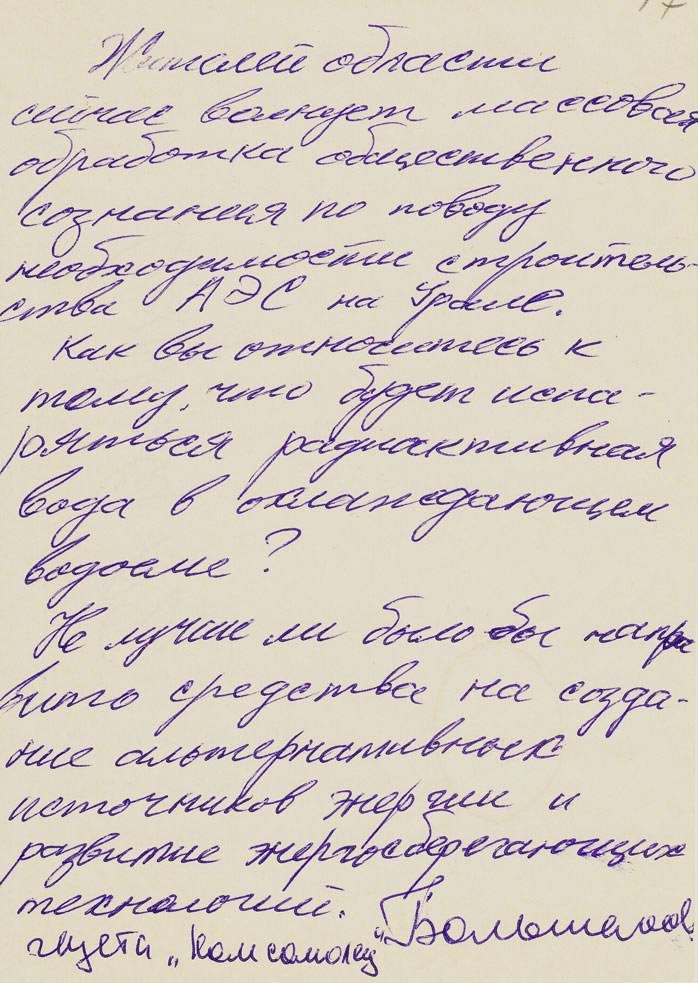 Жителей области
сейчас волнует массовая
обработка общественного
сознания по поводу
необходимости строитель-
ства АЭС на Урале.
Как вы относитесь к
тому, что будет испа-
ряться радиактивная
вода в охлаждающем
водоеме?
Не лучше ли было бы напра
вить средства на созда-
ние альтернативных
источников энергии и
развитие энергосберегающих
технологий.
газета „Комсомолец"